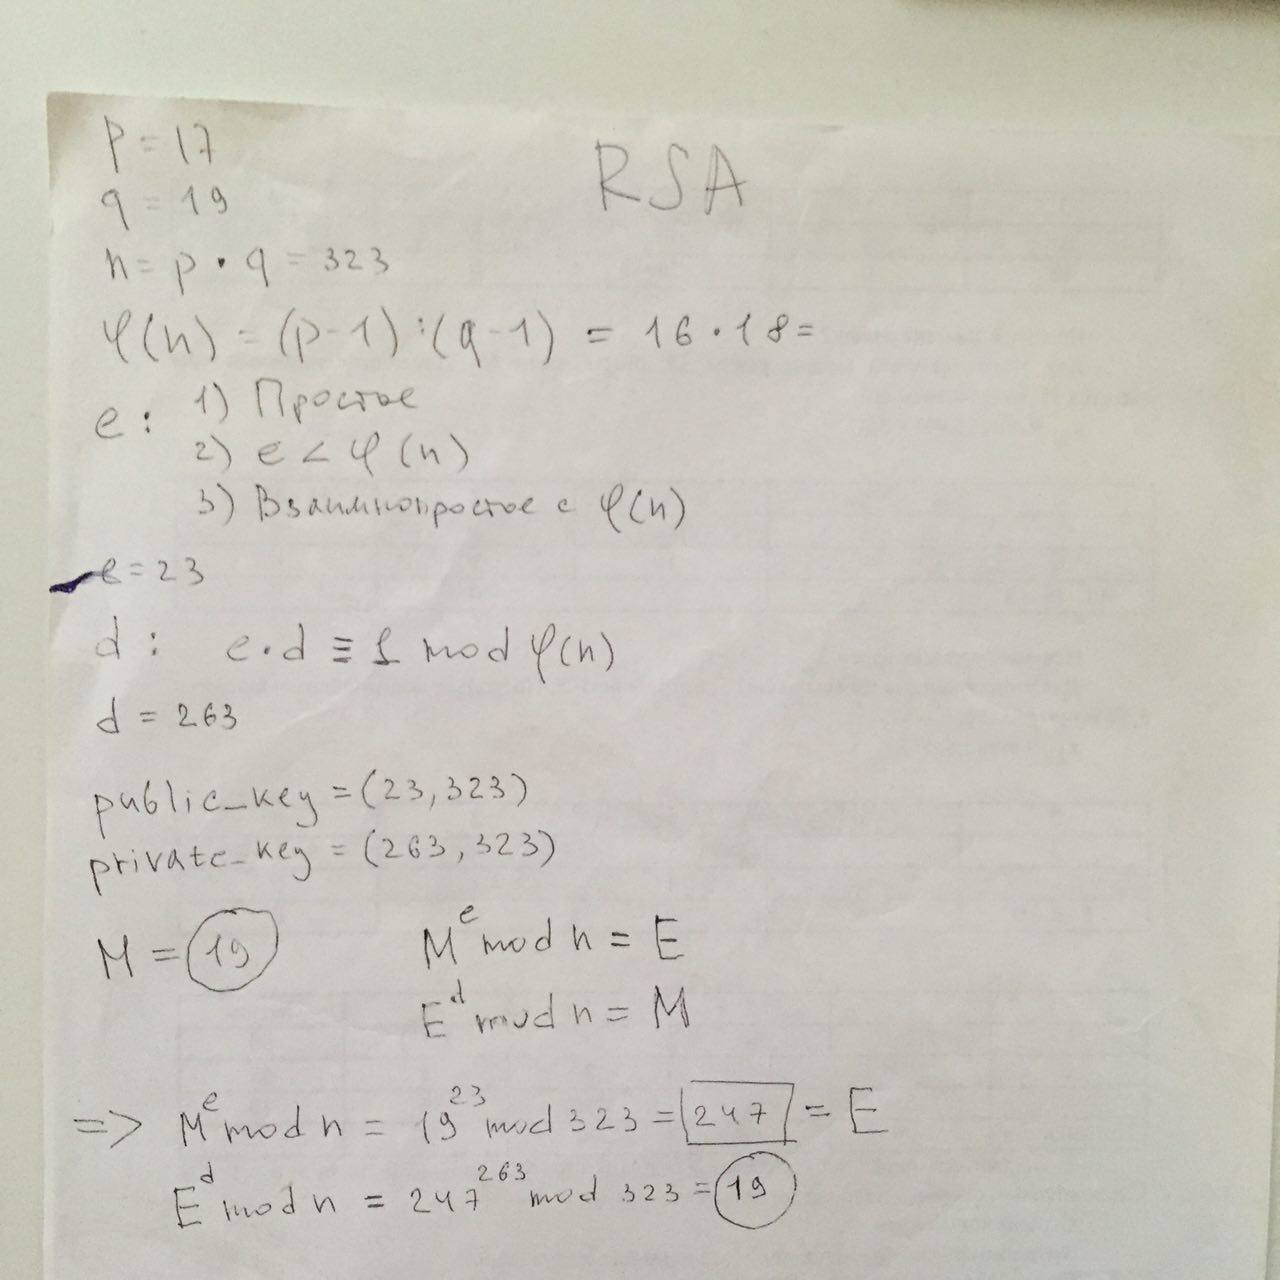 RSA
p = 17
q = 19
n = p · q = 323
φ(n) = (p-1):(q-1) = 16 · 18 =
e: 1) Простое
2) e < φ(n)
3) Взаимнопростое с φ(n)
e = 23
d: e·d ≡ 1 mod φ(n)
d = 263
public_key = (23, 323)
private_key = (263, 323)
M = 19 M^e mod n = E
E^d mod n = M
=> M^e mod n = 19^23 mod 323 = 247 = E
E^d mod n = 247^263 mod 323 = 19